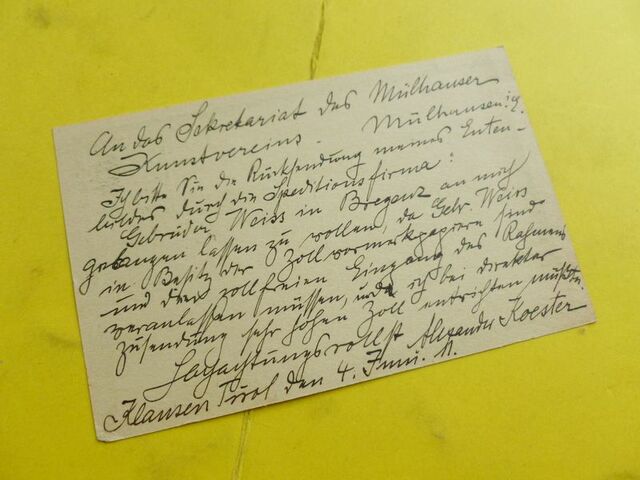 An das Sekretariat des Mülhauser
Kunstvereins. Mülhausen i/E.
Ich bitte Sie die Rücksendung meines Enten-
bildes durch die Speditionsfirma:
Gebrüder Weiss in Bregenz an mich
gelangen lassen zu wollen, da Gebr. Weiss
in Besitz der Zollvormerkpapiere sind
und den zollfreien Eingang des Rahmens
veranlassen müssen, und ich bei direkter
Zusendung sehr hohen Zoll entrichten müsste.
Hochachtungsvollst Alexander Koester
Klausen Tirol den 4. Juni. 11.